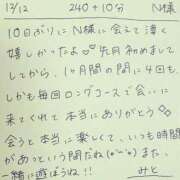 12/12 240+10分 N様
10日ぶりに N様に会えて凄く
嬉しかったよ♡♡先月初めまして
してから、1ヶ月間の間に4回も
しかも毎回ロングコースで会いに
来てくれて本当にありがとう◇
会うと本当に楽しくて、いつも時間
があっという間だね(*^^*)また、
一緒に遊ぼうね!! みと